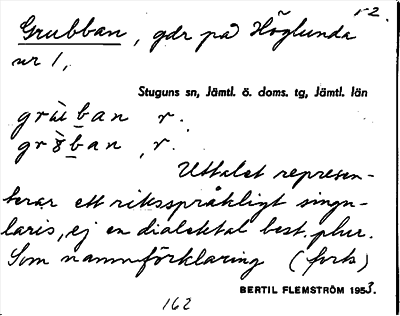 r2.
Grubban, gdr på Höglunda
nr 1,
Stuguns sn, Jämtl. ö. doms. tg, Jämtl. län
grùban r.
r.
Uttalet represen-
terar ett riksspråkligt singu-
laris, ej en dialektal best. plur.
Som namnförklaring (forts)
BERTIL FLEMSTRÖM 1953.
162